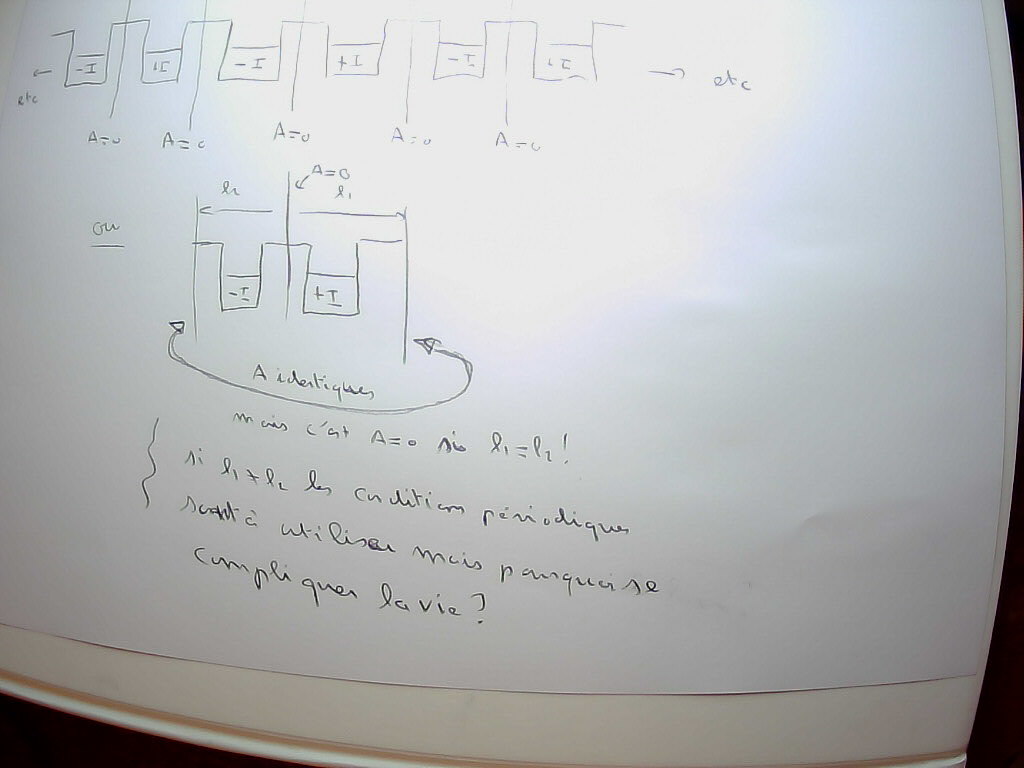 -I +I -I +I -I +I
← etc → etc
A=0 A=0 A=0 A=0 A=0
A=0
l2 l1
ou
-I +I
A identiques
mais c'est A=0 si l1=l2!
si l1≠l2 les condition périodiques
sont à utiliser mais pourquoi se
compliquer la vie?